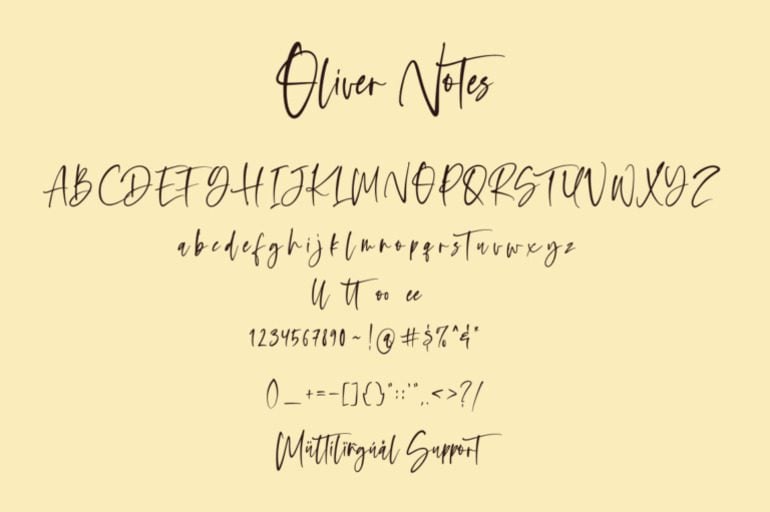 Oliver Notes
ABCDEFGHIJKLMNOPQRSTUVWXYZ
abcdefghijklmnopqrstuvwxyz
ll tt oo ee
1234567890~!@#$%^&*
()_+=-[]{}":;'",.<>?/
Müttilingúål Support